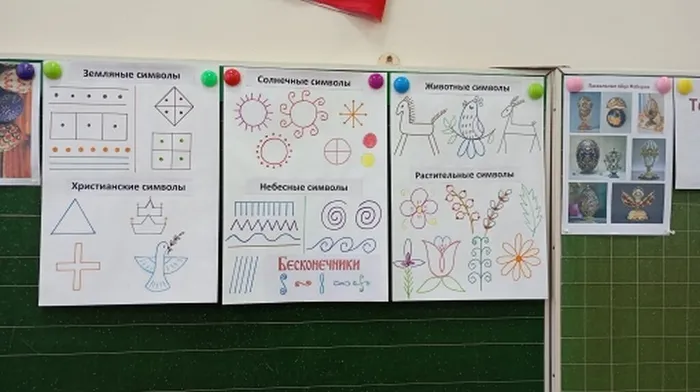 Земляные символы
Христианские символы
Солнечные символы
Небесные символы
Бесконечники
Животные символы
Растительные символы
Пасхальные яйца Фаберже